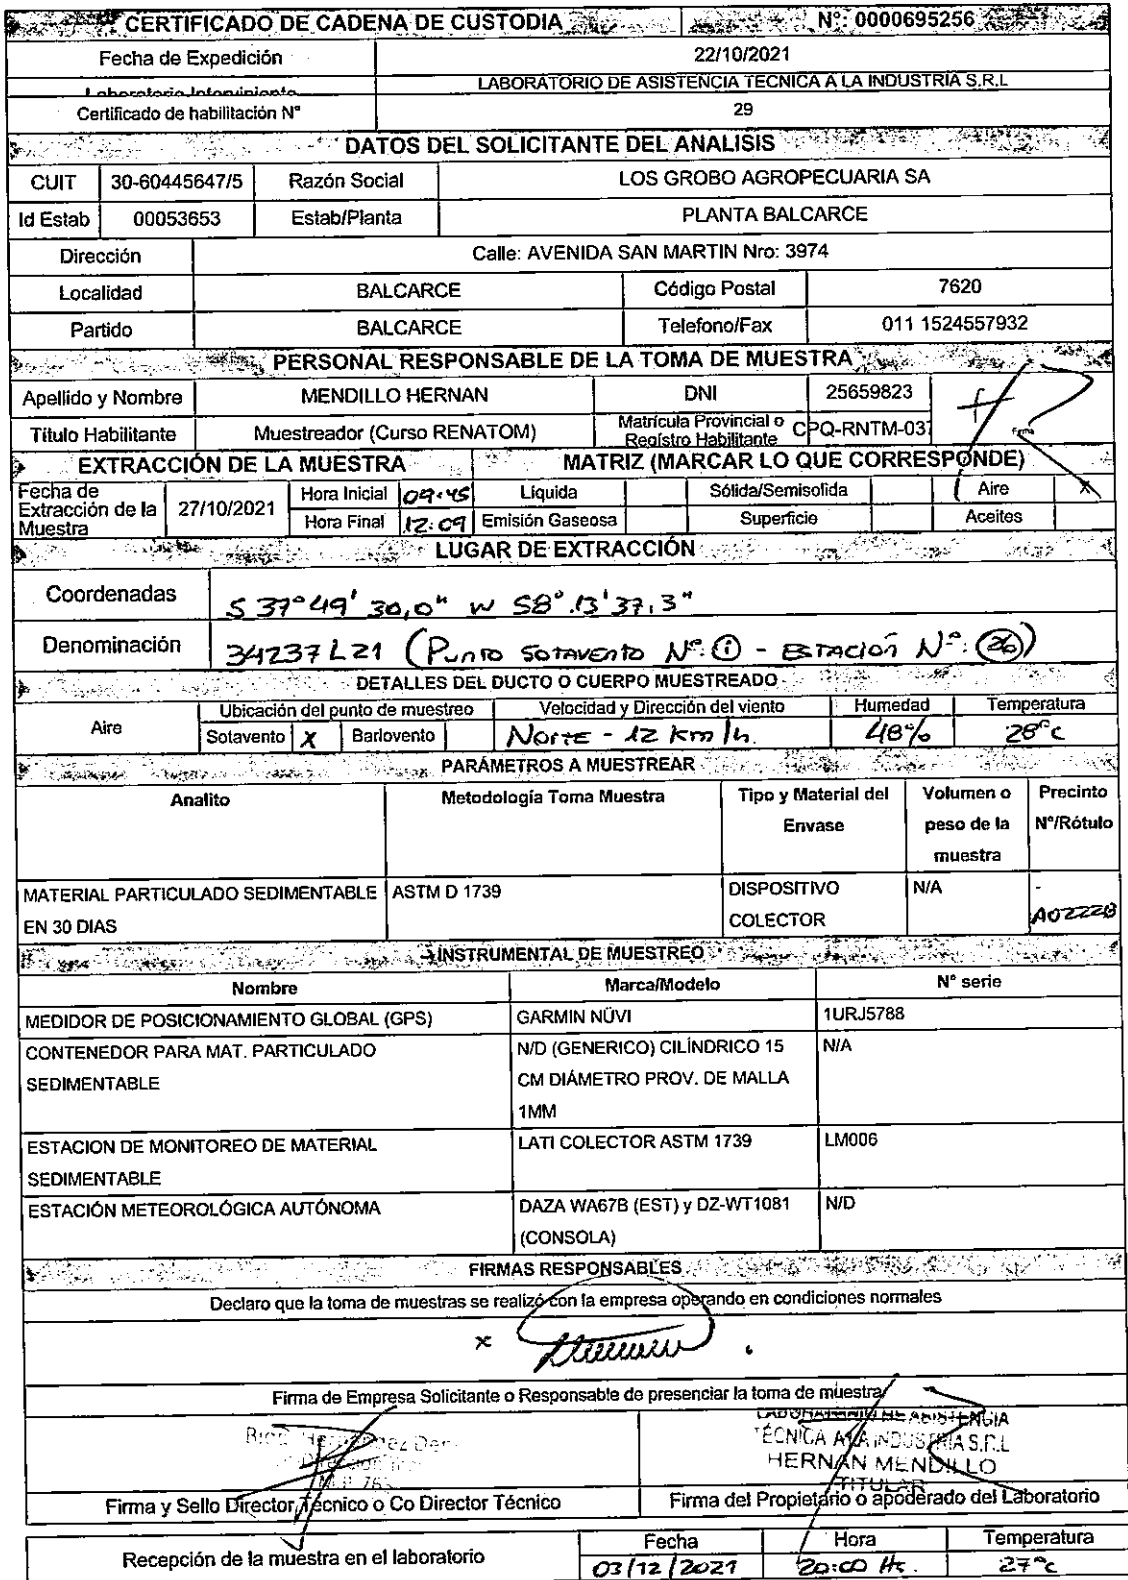 CERTIFICADO DE CADENA DE CUSTODIA N°: 0000695256
Fecha de Expedición 22/10/2021
Laboratorio Interviniente LABORATORIO DE ASISTENCIA TECNICA A LA INDUSTRIA S.R.L
Certificado de habilitación N° 29
DATOS DEL SOLICITANTE DEL ANALISIS
CUIT 30-60445647/5 Razón Social LOS GROBO AGROPECUARIA SA
Id Estab 00053653 Estab/Planta PLANTA BALCARCE
Dirección Calle: AVENIDA SAN MARTIN Nro: 3974
Localidad BALCARCE Código Postal 7620
Partido BALCARCE Telefono/Fax 011 1524557932
PERSONAL RESPONSABLE DE LA TOMA DE MUESTRA
Apellido y Nombre MENDILLO HERNAN DNI 25659823
Título Habilitante Muestreador (Curso RENATOM) Matrícula Provincial o Registro Habilitante CPQ-RNTM-037
EXTRACCIÓN DE LA MUESTRA MATRIZ (MARCAR LO QUE CORRESPONDE)
Fecha de Extracción de la Muestra 27/10/2021 Hora Inicial 09:45 Líquida Sólida/Semisolida Aire X
Hora Final 12:09 Emisión Gaseosa Superficie Aceites
LUGAR DE EXTRACCIÓN
Coordenadas S 37° 49' 30,0" W 58°.13'37,3"
Denominación 34237L21 (Punto sotavento N°: 1 - Estación N°: 26)
DETALLES DEL DUCTO O CUERPO MUESTREADO
Aire Ubicación del punto de muestreo Velocidad y Dirección del viento Humedad Temperatura
Sotavento X Barlovento Norte - 12 Km/h. 48% 28°C
PARÁMETROS A MUESTREAR
Analito Metodología Toma Muestra Tipo y Material del Envase Volumen o peso de la muestra Precinto N°/Rótulo
MATERIAL PARTICULADO SEDIMENTABLE EN 30 DIAS ASTM D 1739 DISPOSITIVO COLECTOR N/A -
INSTRUMENTAL DE MUESTREO
Nombre Marca/Modelo N° serie
MEDIDOR DE POSICIONAMIENTO GLOBAL (GPS) GARMIN NÜVI 1URJ5788
CONTENEDOR PARA MAT. PARTICULADO SEDIMENTABLE N/D (GENERICO) CILÍNDRICO 15 CM DIÁMETRO PROV. DE MALLA 1MM N/A
ESTACION DE MONITOREO DE MATERIAL SEDIMENTABLE LATI COLECTOR ASTM 1739 LM006
ESTACIÓN METEOROLÓGICA AUTÓNOMA DAZA WA67B (EST) y DZ-WT1081 (CONSOLA) N/D
FIRMAS RESPONSABLES
Declaro que la toma de muestras se realizó con la empresa operando en condiciones normales
x
Firma de Empresa Solicitante o Responsable de presenciar la toma de muestra
LABORATORIO DE ASISTENCIA
TÉCNICA A LA INDUSTRIA S.R.L
HERNAN MENDILLO
TITULAR
Firma y Sello Director Técnico o Co Director Técnico Firma del Propietario o apoderado del Laboratorio
Recepción de la muestra en el laboratorio Fecha Hora Temperatura
03/12/2021 20:00 Hs. 27°C